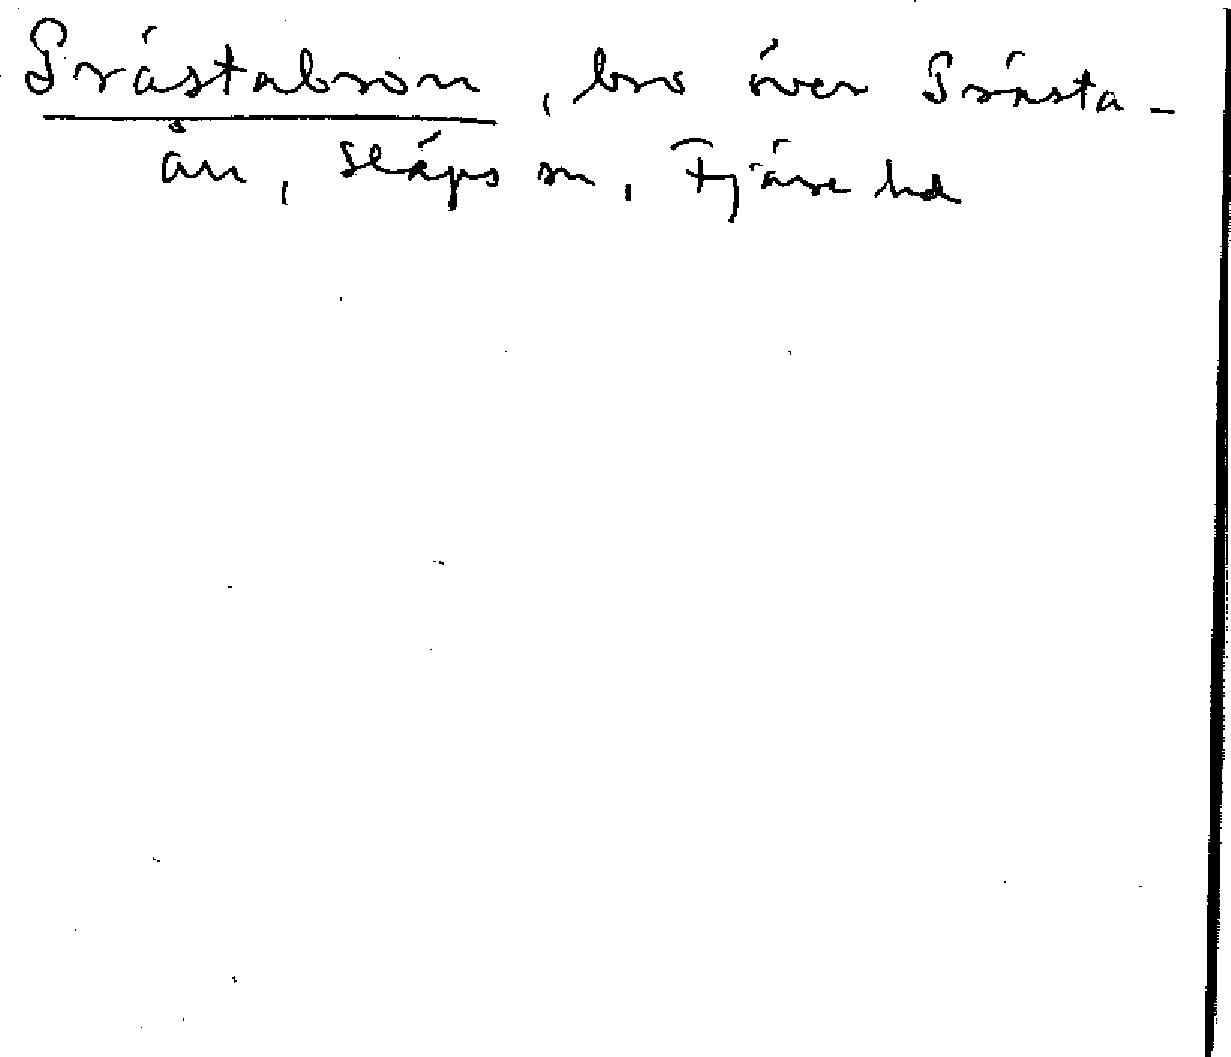 Prästabron, bro över Prästa-
ån, Släps sn, Fjäre hd